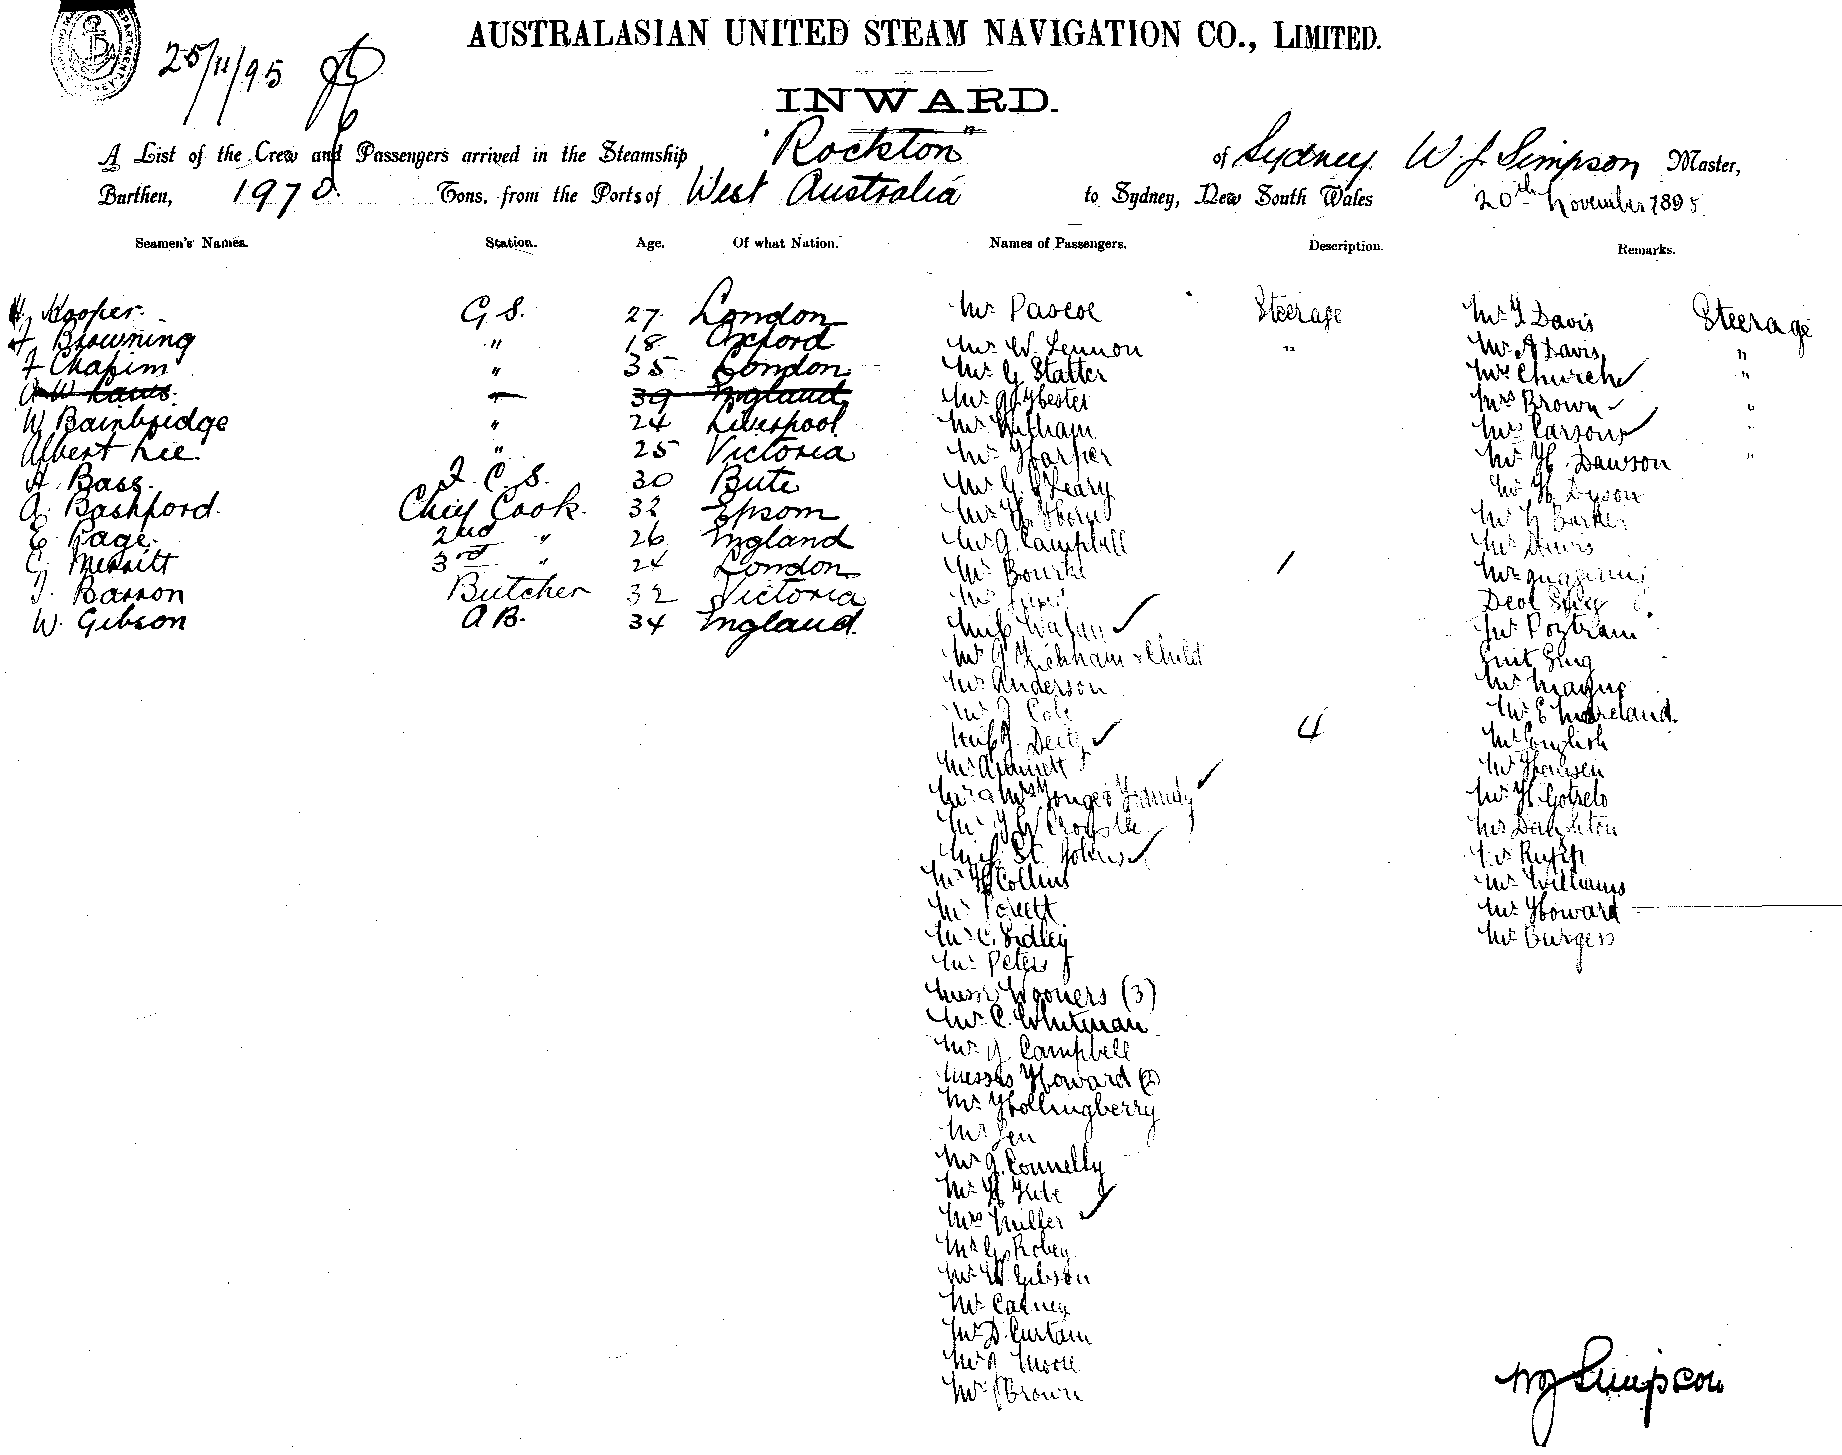 25/11/95
AUSTRALASIAN UNITED STEAM NAVIGATION CO., LIMITED.
INWARD.
A List of the Crew and Passengers arrived in the Steamship "Rockton" of Sydney W J Simpson Master,
Burthen, 1970 Tons, from the Ports of West Australia to Sydney, New South Wales 20th November 1895
Seamen's Names. Station. Age. Of what Nation. Names of Passengers. Description. Remarks.
Hooper G S. 27 London
Browning " 18 Oxford
F Chapim " 35 London
39 England
W Bainbridge " 24 Liverpool
Albert Lee " 25 Victoria
A Bass. F. C. S. 30 Bute
A. Bashford. Chief Cook 32 Epsom
E Page. 2nd " 26 England
C. Merritt 3rd " 24 London
Barron Butcher 32 Victoria
W. Gibson A B. 34 England
Mr Pascoe Steerage
Mr W. Lennon "
Mr G Statter
Mr
Mr Witham
Mr Harper
Mr G O'Leary
Mr H. Thorn
Mr A. Campbell
Mr Bourke 1
Mr
Miss
Mr J Kickham & Child
Mr Anderson
Mr J Cole
Miss 4
Mr
Mr & Mrs Yonge & Family
Mr
Miss St Johns
Mr H Collins
Mr
Mr C. Sidley
Mr Peters
Messrs (3)
Mr C. Whitman
Mr J Campbell
Messrs Howard (2)
Mr Hollingberry
Mr
Mr J. Connelly
Mr
Mrs Miller
Mr G. Robey
Mr W Gibson
Mr Carney
Mr D. Curtain
Mr J Moore
Mr J Brown
Mr J Davis Steerage
Mr A Davis "
Mrs Church "
Mrs Brown "
Mrs Carsons "
Mr H. Dawson "
Mr H. Dyson
Mr H Barker
Mr
Mr
Deol Sing
Mr
Sing
Mr Mayne
Mr E Moreland.
Mr English
Mr Hansen
Mr H
Mr Daughton
Mr
Mr Williams
Mr Howard
Mr Burgess
W J Simpson